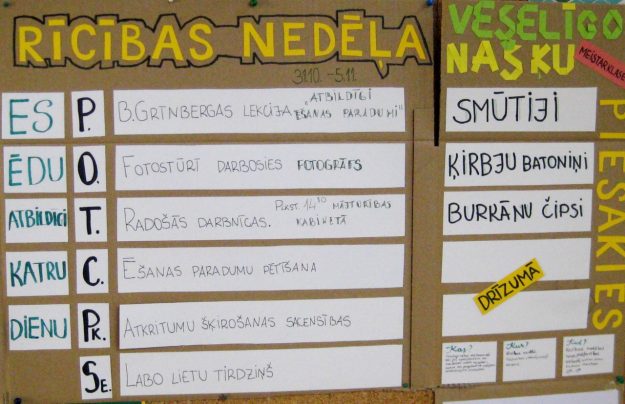 RĪCĪBAS NEDĒĻA
31.10. - 5.11.
ES P. B.GRĪNBERGAS LEKCIJA „ATBILDĪGI
ĒŠANAS PARADUMI"
ĒDU O. FOTOSTŪRĪ DARBOSIES FOTOGRĀFS
ATBILDĪGI T. RADOŠĀS DARBNĪCAS. PLKST. 14³⁰ MĀJTURĪBAS
KABINETĀ
KATRU C. ĒŠANAS PARADUMU PĒTĪŠANA
DIENU PK. ATKRITUMU ŠĶIROŠANAS SACENSĪBAS
SE. LABO LIETU TIRDZIŅŠ
VESELĪGO
NAŠĶU
MEISTARKLASE
SMŪTIJI
ĶIRBJU BATONIŅI
BURKĀNU ČIPSI
DRĪZUMĀ
PIESAKIES
Kas?
Kur?
Kad?